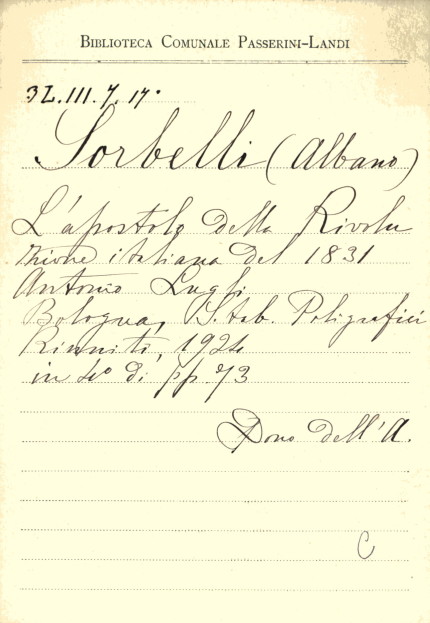 BIBLIOTECA COMUNALE PASSERINI-LANDI
3L.III.7.17.
Sorbelli (Albano)
L'apostolo della Rivolu
zione italiana del 1831
Antonio Lugli.
Bologna, Stab. Poligrafici
Riuniti, 1924
in 4° di pp. 73
Dono dell'A.
C